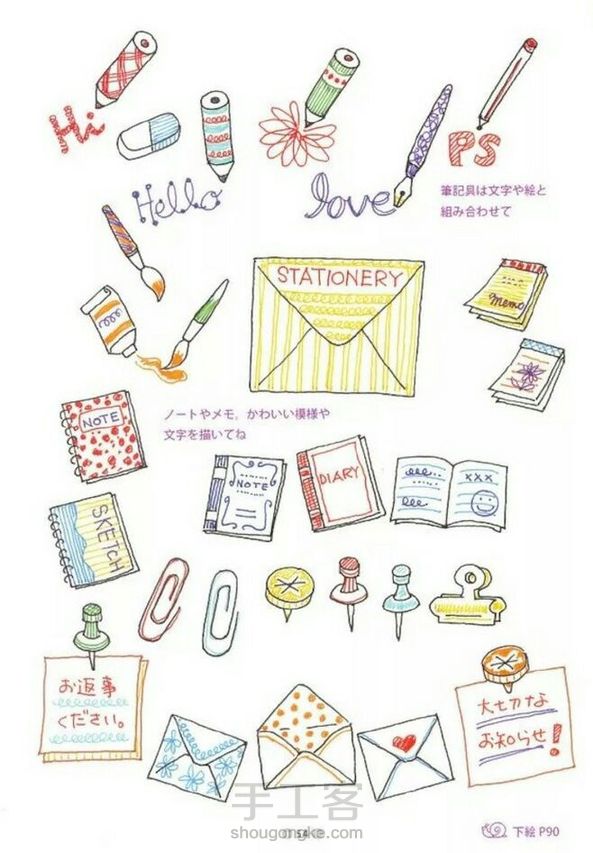 Hi
Hello
love
PS
筆記具は文字や絵と
組み合わせて
STATIONERY
Memo
NOTE
ノートやメモ。かわいい模様や
文字を描いてね
NOTE
DIARY
XXX
SKETCH
お返事
ください。
大切な
お知らせ!
手工客
shougongke.com
54
下絵 P90